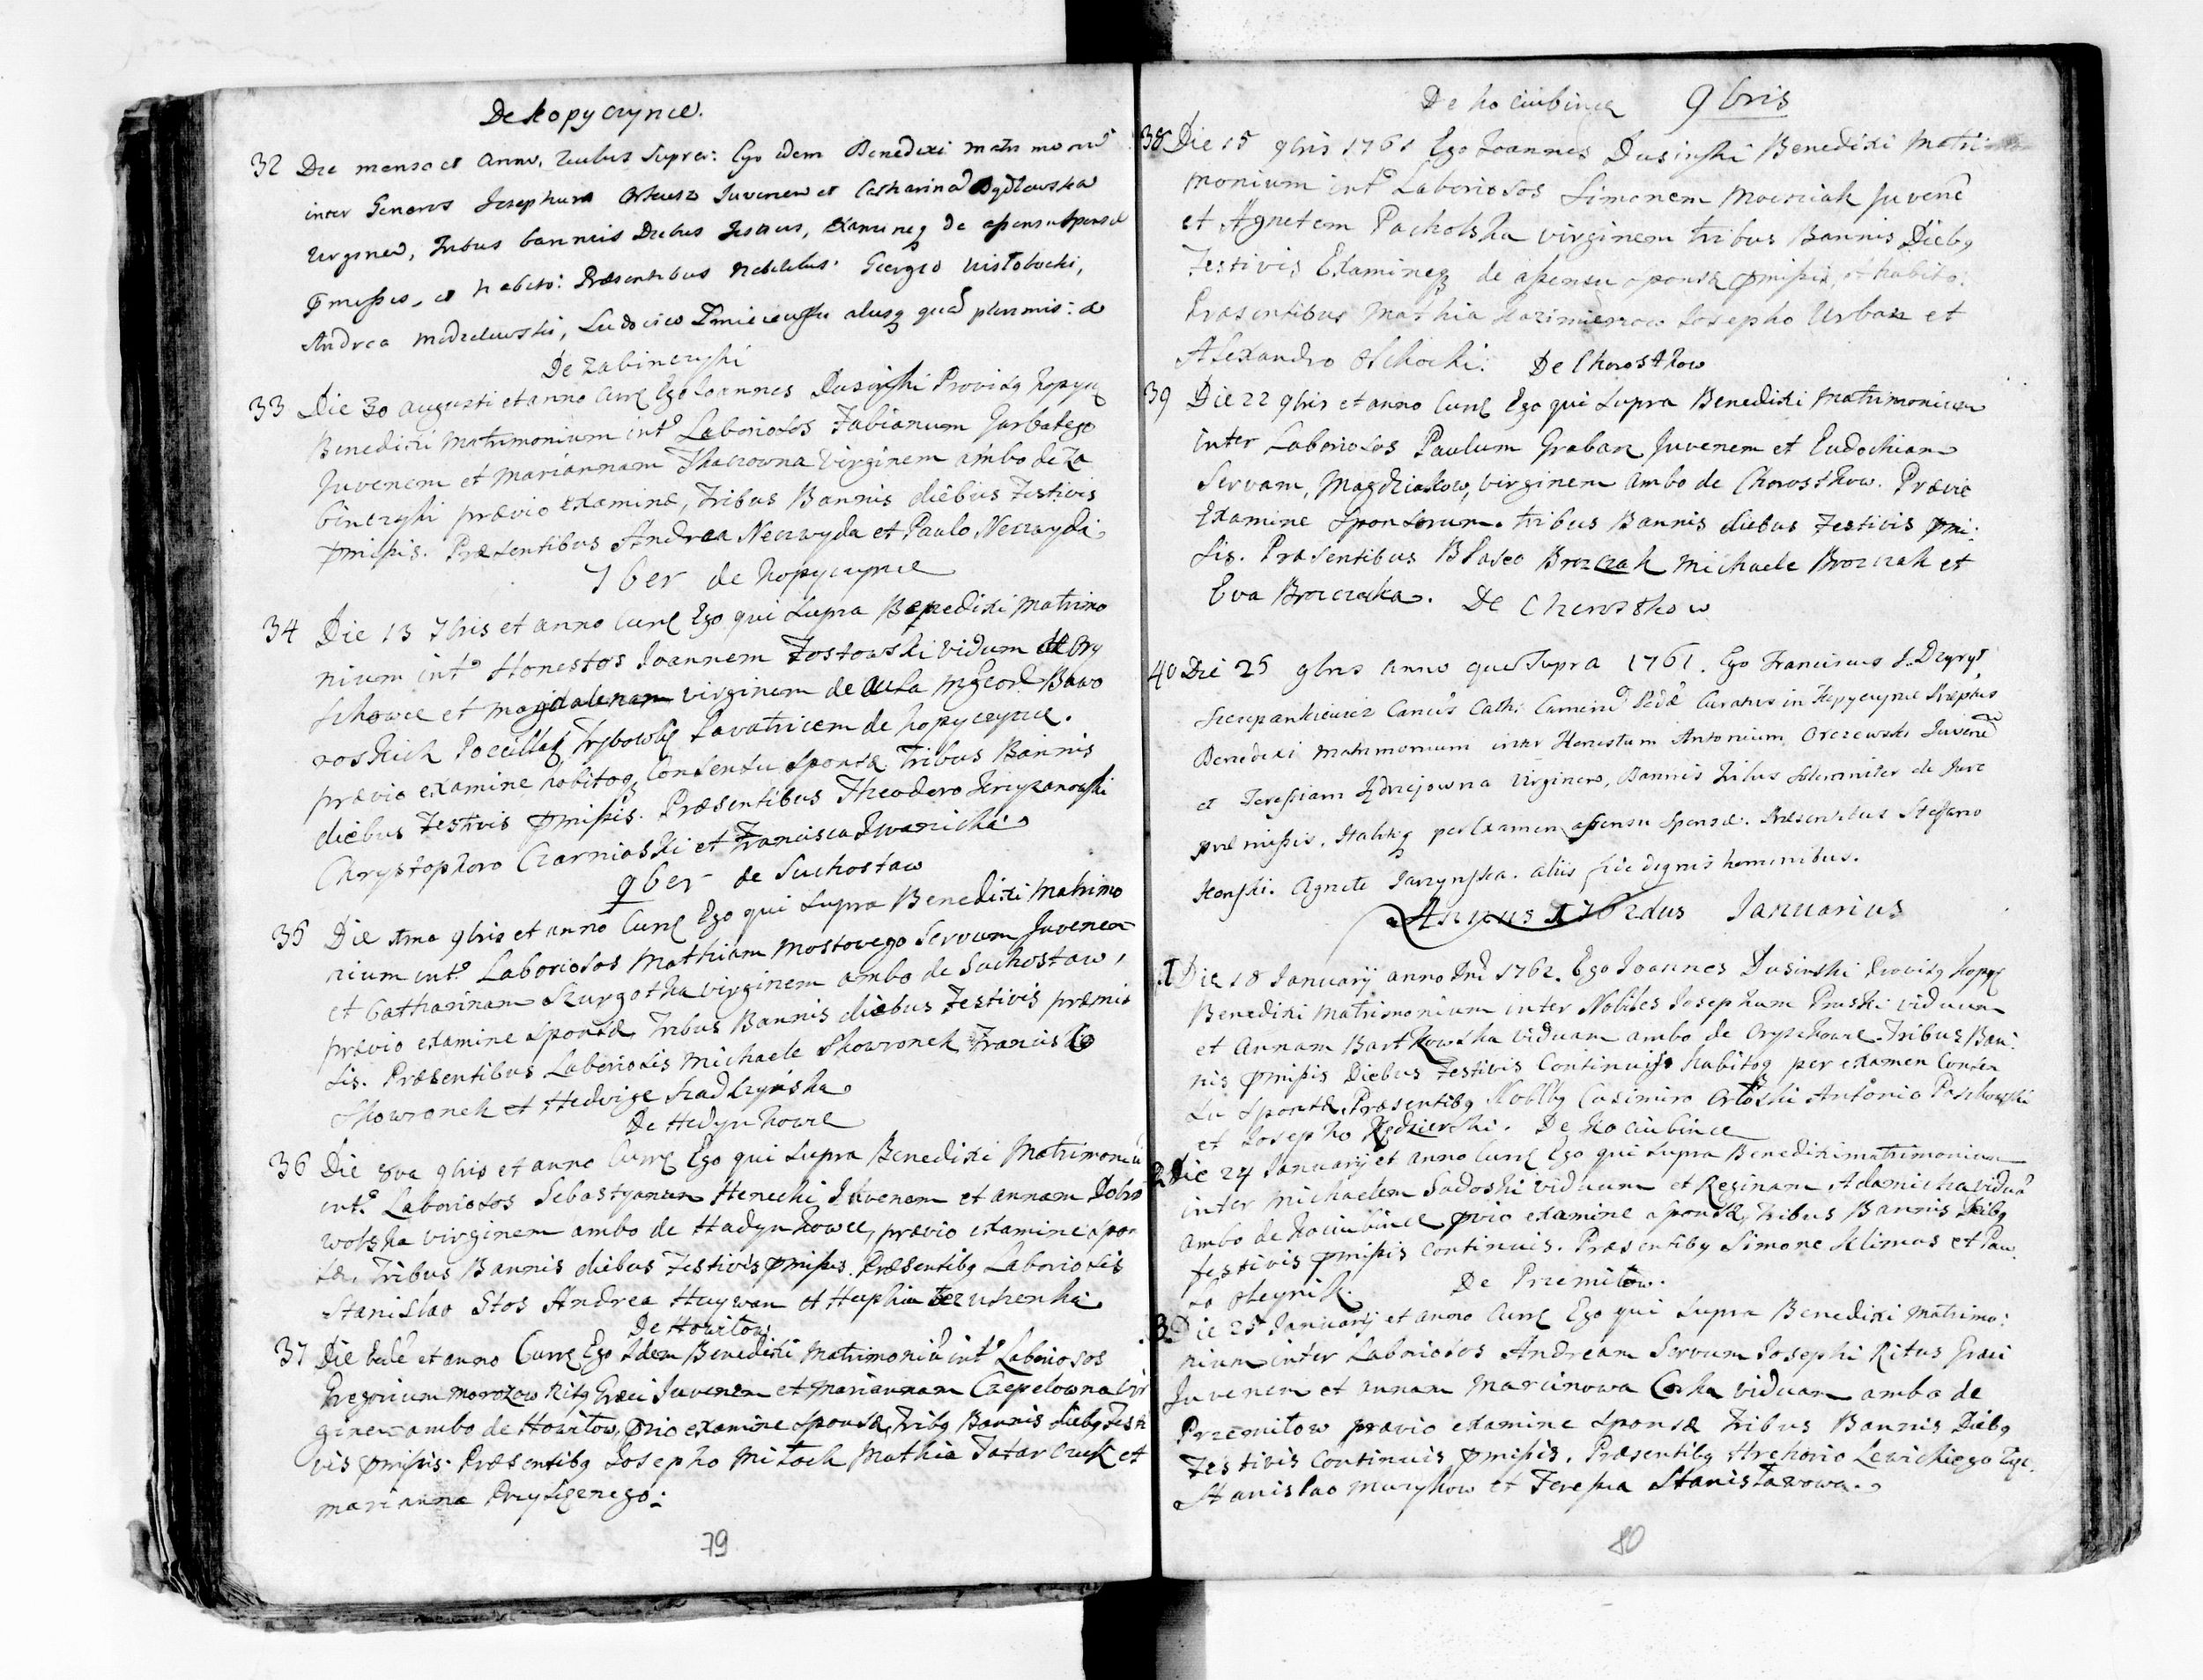 De Kopyczynce.
32 Die mense et Anno, quibus Supra: Ego idem Benedixi matrimoniu
inter Generos Josephum Juvenem et Catharina
Virgine, Tribus bannis Diebus festivis, Examineq de assensu Sponsæ
pmissis, et habito: Præsentibus Nobilibus: Georgio
Andrea Ludovico aliisq qua plurimis:
De Zabinczyki
33 Die 30 Augusti et anno Curr Ego Joannes Dusinski Provisq Kopycz
Benedixi Matrimonium int Laboriosos Fabianum Garbatego
Juvenem et Mariannam Tkaczowna Virginem ambo de Za
binczyki prævio examine, Tribus Bannis diebus Festivis
pmissis. Præsentibus Andrea Neczwyda et Paulo Neczwyda
7ber de Kopyczynce
34 Die 13 7bris et anno Curr Ego qui Supra Benedixi Matrimo
nium int Honestos Joannem Fostowski viduum de Ory
szkowce et Magdalenam virginem de Aula Bawo
rowskich Lavatricem de Kopyczynce.
prævio examine habitoq Consensu Sponsæ Tribus Bannis
diebus Festivis pmissis. Præsentibus Theodoro
Chrystophoro Czarniaski et Francisca Iwanicka
9ber de Suchostaw
35 Die 1ma 9bris et anno Curr Ego qui Supra Benedixi Matrimo
nium int Laboriosos Mathiam Mostowego Servum Juvenem
et Catharinam Szurgotka virginem ambo de Suchostaw,
prævio examine Sponsæ, Tribus Bannis diebus Festivis præmis
sis. Præsentibus Laboriosis Michaele Skowronek Francisco
Skowronek et Hedvige
De Hadynkowce
36 Die 8va 9bris et anno Curr Ego qui Supra Benedixi Matrimoniu
int Laboriosos Sebastyanum Henecki Juvenem et annam Dobro
wolska virginem ambo de Hadynkowce, prævio examine spon
sæ, Tribus Bannis diebus Festivis pmissis. Præsentibq Laboriosis
Stanislao Stos Andrea Huywan et
De Howitow
37 Die et anno Curr Ego Idem Benedixi Matrimoniu int Laboriosos
Gregorium Morozow Ritq Græci Juvenem et Mariannam Czepelowna vir
ginem ambo de Howitow, pvio examine Sponsæ, Tribq Bannis diebq Festi
vis pmissis. Præsentibq Josepho Mitoch Mathia Tatarczuk et
Marianna
79
De Kociubince 9bris
38 Die 15 9bris 1761 Ego Joannes Dusinski Benedixi Matri
monium int Laboriosos Simonem Juvene
et Agnetem Pacholska virginem tribus Bannis Diebq
Festivis Examineq de assensu sponsæ pmissis, et habito:
Præsentibus Mathia Kazimierzow Josepho Urban et
Alexandro Olchocki: De Chorostkow
39 Die 22 9bris et anno Curr Ego qui Supra Benedixi Matrimonium
inter Laboriosos Paulum Grabar Juvenem et Eudochiam
Servam, Magdziakow, virginem ambo de Chorostkow. Prævio
Examine Sponsorum. tribus Bannis diebus Festivis pmi:
sis. Præsentibus Blaseo Brozczak Michaele Brozczak et
Eva Brozczka. De Chorostkow
40 Die 25 9bris Anno quo Supra 1761. Ego Franciscus
Szczepankiewicz Canus Cath: Camene Curatus in Kopyczynce
Benedixi Matrimonium inter Honestum Antonium Orczewski Juvene
et Teressiam Jędrzejowna Virginem, Bannis Tribus Solemniter de Jure
præmissis, per Examen assensu Sponsæ. Præsentibus Steffano
Agnete aliis fide dignis hominibus.
Annus 1762dus Januarius
1 Die 18 Januarij anno Dni 1762. Ego Joannes Dusinski Provisq Kopycz
Benedixi Matrimonium inter Nobiles Josephum Pruski viduum
et Annam Bartkowska viduam ambo de Oryszkowce. Tribus Ban:
nis pmissis Diebus Festivis Continuis habitoq per examen Consen
su Sponsæ. Præsentibq Noblbq Casimiro Orłoski Antonio
et Josepho Kędzierski. De Kociubince
2 Die 24 Januarij et anno Curr Ego qui Supra Benedixi matrimonium
inter Michaelem Sadoski viduum et Reginam Adamicha vidua
ambo de Kociubince pvio examine sponsæ, Tribus Bannis Diebq
festivis pmissis continuis. Præsentibq Simone Klimas et Pau
lo Oleynik. De Przemitow.
3 Die 25 Januarij et anno Curr Ego qui Supra Benedixi Matrimo:
nium inter Laboriosos Andream Servum Josephi Ritus Græci
Juvenem et annam Marcinowa Corka viduam ambo de
Przemitow prævio examine Sponsæ Tribus Bannis Diebq
Festivis Continuis pmissis. Præsentibq Hrehorio Lewickiego
Stanislao Muzykow et Teressia Stanisławowa.
80